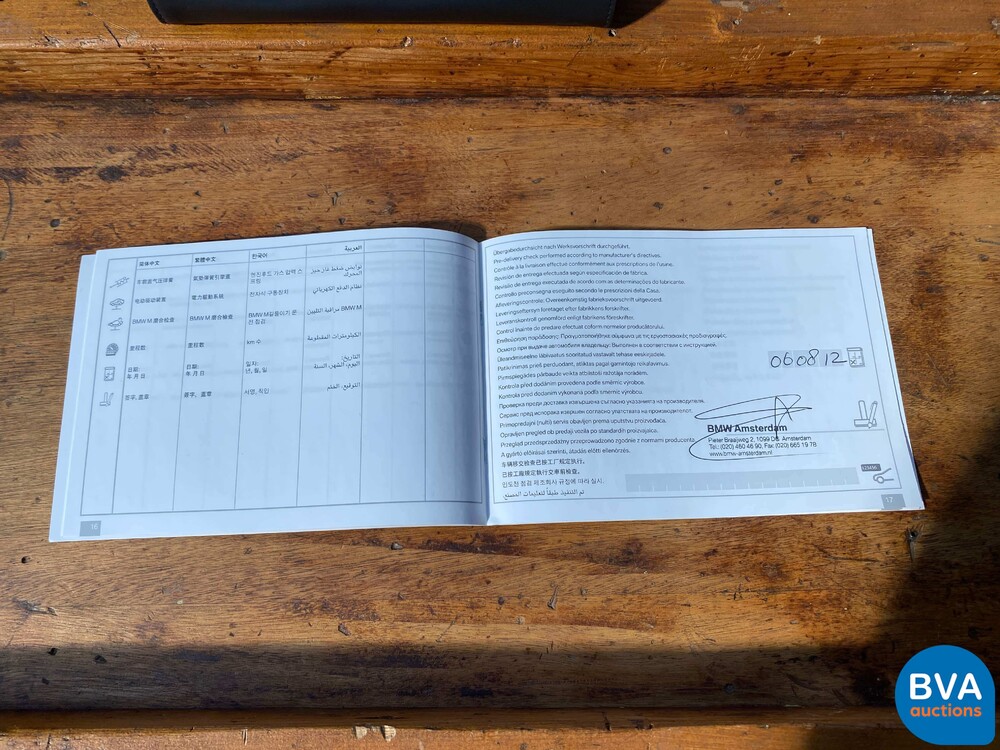 简体中文 繁體中文 한국어 العربية
车前盖气压弹簧 氣墊彈簧引擎蓋 엔진후드 가스 압력 스프링
电动驱动装置 電力驅動系統 전자식 구동장치 نظام الدفع الكهربائي
BMW M 磨合检查 BMW M 磨合檢查 BMW M 길들이기 운전 점검 BMW M مراقبة التليين
里程数 里程數 km 수 الكيلومترات المقطوعة
日期: 日期: 일자: التاريخ:
年 月 日 年 月 日 년, 월, 일 اليوم، الشهر، السنة
签字, 盖章 簽字, 蓋章 서명, 직인 التوقيع، الختم
16
Übergabedurchsicht nach Werksvorschrift durchgeführt.
Pre-delivery check performed according to manufacturer's directives.
Contrôle à la livraison effectué conformément aux prescriptions de l'usine.
Revisión de entrega efectuada según especificación de fábrica.
Revisão de entrega executada de acordo com as determinações do fabricante.
Controllo preconsegna eseguito secondo le prescrizioni della Casa.
Afleveringscontrole: Overeenkomstig fabrieksvoorschrift uitgevoerd.
Leveringseftersyn foretaget efter fabrikkens forskrifter.
Leveranskontroll genomförd enligt fabrikens föreskrifter.
Control înainte de predare efectuat coform normelor producătorului.
Επιθεώρηση παράδοσης: Πραγματοποιήθηκε σύμφωνα με τις εργοστασιακές προδιαγραφές.
Осмотр при выдаче автомобиля владельцу: Выполнен в соответствии с инструкцией.
Üleandmiseelne läbivaatus sooritatud vastavalt tehase eeskirjadele.
Patikrinimas prieš perduodant, atliktas pagal gamintojo reikalavimus.
Pirmspiegādes pārbaude veikta atbilstoši ražotāja norādēm.
Kontrola před dodáním provedena podle směrnic výrobce.
Kontrola pred dodaním vykonaná podľa smerníc výrobcu.
Проверка преди доставка извършена съгласно указанията на производителя.
Сервис пред испорака извершен согласно упатствата на производителот.
Primopredajni (nulti) servis obavljen prema uputstvu proizvođača.
Opravljen pregled ob predaji vozila po standardih proizvajalca.
Przegląd przedsprzedażny przeprowadzono zgodnie z normami producenta.
A gyártó előírásai szerint, átadás előtt ellenőrzés.
车辆移交检查已按工厂规定执行。
已按工廠規定執行交車前檢查。
인도전 점검 제조회사 규정에 따라 실시.
تم التنفيذ طبقاً لتعليمات المصنع.
060812
BMW Amsterdam
Pieter Braaijweg 2, 1099 DK Amsterdam
Tel.: (020) 460 46 90, Fax: (020) 665 19 78
www.bmw-amsterdam.nl
17
BVA
auctions